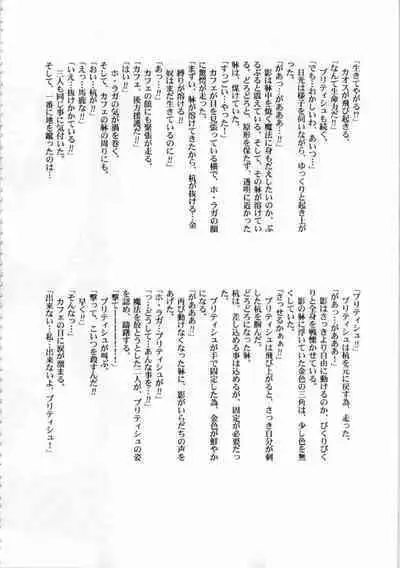 「生きてやがる!!」
カオスが飛び起きる。
「なんて生命力だ!!」
ブリティシュも続く。
「でも…おかしいわ、あいつ…」
日光は様子を伺いながら、ゆっくりと起き上が
る。
「があっーがああ…っ!!」
影は躰中を焼く魔法に身もだえしたいのか、ぶ
るぶると震えている。そして、その躰が溶けてい
る。どろどろと、原形を保てず、透明に近かった
躰は、保けていた。
「すっごーい、やったー!」
カフェが目を見張っている横で、ホ・ラガの顔
に驚愕が走った。
「まずい、躰が溶けてきたから、杭が抜ける…金
縛りが溶ける!!」
「奴はまだ生きているのに!!」
「あっ…!!」
カフェの顔にも緊張が走る。
「カフェ、後方援護だ!!」
「はい!!」
そして、カフェの躰の周りにも、
ホ・ラガの気が渦を巻く。
「おい、杭が!!」
「えっ…馬鹿な!!」
「いえ…抜けかかている!!」
三人も同じ事に気付いた。
そして、一番に地を蹴ったのは…
「ブリティシュ!!」
ブリティシュは杭を元に戻す為、走った。
「がっ…ががああ!!」
影はさっきより自由に動けるのか、びくりびく
りと全身を戦慄かせている。
影の躰に浮いていた金色の三角は、少し色を無
くしていた。
「さっせるかぁぁ!!」
ブリティシュは飛び上がると、さっき自分が刺
した杭を掴んだ。
どろどろになった躰。
杭は、差し込める事は込めるが、固定が必要だっ
た。
ブリティシュが手で固定した為、金色が鮮やか
になる。
「がああああ!!」
再び動けなくなった躰に、影がいらだちの声を
あげた。
「ホ・ラガ…ブリティシュが!!」
「っ…どうして…あんな事を…!!」
魔法を放とうとした二人が、ブリティシュの姿
を認め、躊躇する。
「撃てーーーーー!!」
ブリティシュが叫ぶ。
「撃って、こいつを殺すんだ!!」
早く!!」
「そんなっ…!」
カフェの目に涙が溜まる。
「出来ない…私…出来ないよ、ブリティシュ!」